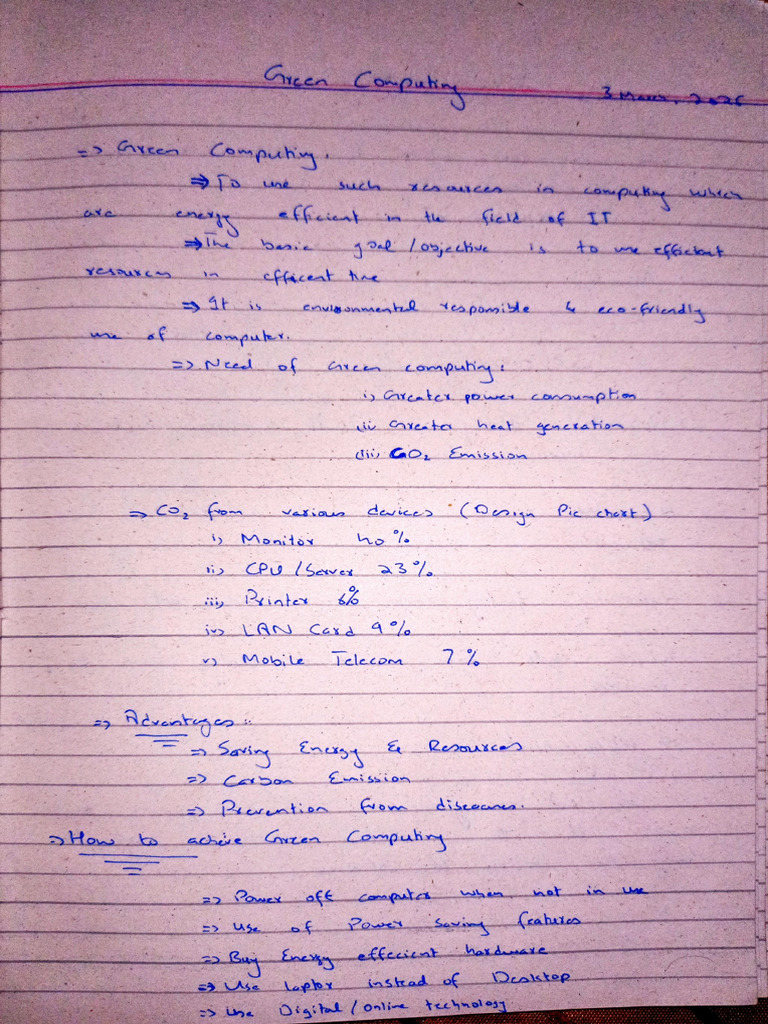 Green Computing
3 March, 2026
=> Green Computing.
=> To use such resources in computing which
are energy efficient in the field of IT
=> The basic goal/objective is to use efficient
resources in efficent time
=> It is environmental responsible & eco-friendly
use of computer.
=> Need of Green computing:
i) Greater power consumption
(ii Greater heat generation
(iii) CO₂ Emission
=> CO₂ from various devices (Design Pie chart)
i) Monitor 40%
ii) CPU/Server 23%
iii) Printer 6%
iv) LAN Card 9%
v) Mobile Telecom 7%
=> Advantages:
=> Saving Energy & Resources
=> Carbon Emission
=> Prevention from
=> How to achive Green Computing
=> Power off computer when not in use
=> Use of Power saving features
=> Buy Energy effecient hardware
=> Use laptop instead of Desktop
=> Use Digital/online technology